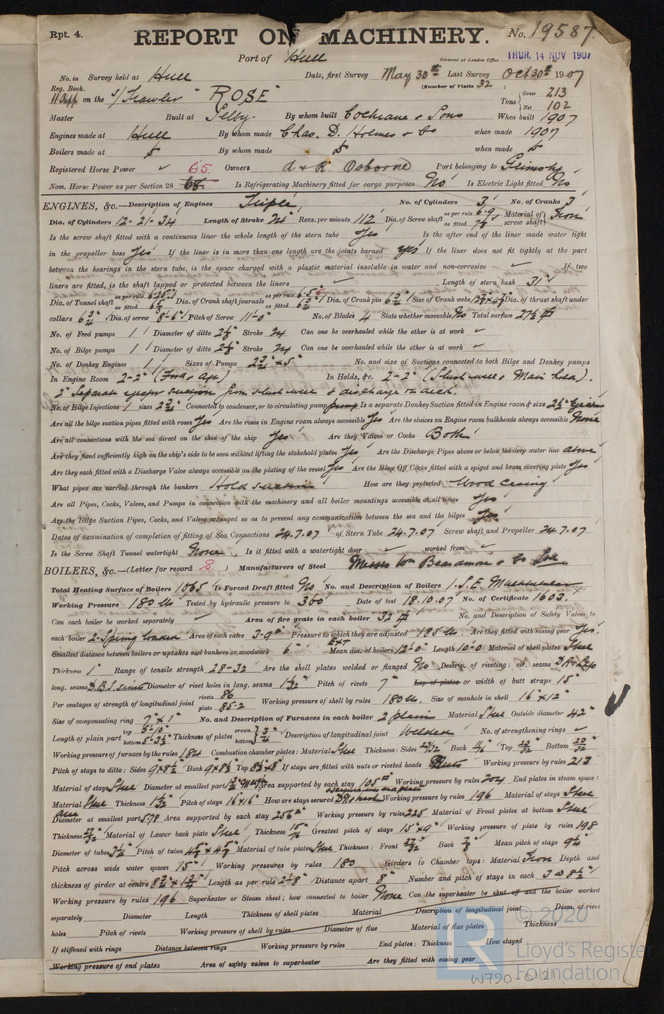 Rpt. 4. REPORT ON MACHINERY. No. 19587
Port of Hull
Received at London Office THUR. 14 NOV 1907
No. in Survey held at Hull Date, first Survey May 30th Last Survey Oct 30th 1907
Reg. Book. (Number of Visits 32)
on the S/Trawler "ROSE" Tons Gross 213 Net 102
Master Built at Selby By whom built Cochrane & Sons When built 1907
Engines made at Hull By whom made Chas. D. Holmes & Co when made 1907
Boilers made at do By whom made do when made do
Registered Horse Power 65 Owners A & R Osborne Port belonging to Grimsby
Nom. Horse Power as per Section 28 68 Is Refrigerating Machinery fitted for cargo purposes No Is Electric Light fitted No
ENGINES, &c.—Description of Engines Triple No. of Cylinders 3 No. of Cranks 3
Dia. of Cylinders 12-21-34 Length of Stroke 24 Revs. per minute 112 Dia. of Screw shaft as per rule as fitted Material of screw shaft Iron
Is the screw shaft fitted with a continuous liner the whole length of the stern tube Yes Is the after end of the liner made water tight
in the propeller boss Yes If the liner is in more than one length are the joints burned Yes If the liner does not fit tightly at the part
between the bearings in the stern tube, is the space charged with a plastic material insoluble in water and non-corrosive If two
liners are fitted, is the shaft lapped or protected between the liners Length of stern bush 31"
Dia. of Tunnel shaft as per rule as fitted Dia. of Crank shaft journals as per rule as fitted Dia. of Crank pin 6 3/4 Size of Crank webs Dia. of thrust shaft under
collars 6 3/4 Dia. of screw 8-6 Pitch of Screw 11-0 No. of Blades 4 State whether moveable No Total surface 27 1/2
No. of Feed pumps 1 Diameter of ditto Stroke 24 Can one be overhauled while the other is at work
No. of Bilge pumps 1 Diameter of ditto Stroke 24 Can one be overhauled while the other is at work
No. of Donkey Engines 1 Sizes of Pumps No. and size of Suctions connected to both Bilge and Donkey pumps
In Engine Room 2-2" (Ford & Aft) In Holds, &c. 2-2" (Slush well & Main hold).
2" Separate ejector suction from slush well & discharge on deck.
No. of Bilge Injections 1 sizes Connected to condenser, or to circulating pump pump Is a separate Donkey Suction fitted in Engine room & size Ejector
Are all the bilge suction pipes fitted with roses Yes Are the roses in Engine room always accessible Yes Are the sluices on Engine room bulkheads always accessible None
Are all connections with the sea direct on the skin of the ship Yes Are they Valves or Cocks Both
Are they fixed sufficiently high on the ship's side to be seen without lifting the stokehold plates Yes Are the Discharge Pipes above or below the deep water line above
Are they each fitted with a Discharge Valve always accessible on the plating of the vessel Yes Are the Blow Off Cocks fitted with a spigot and brass covering plate Yes
What pipes are carried through the bunkers Hold suction How are they protected Wood casing
Are all Pipes, Cocks, Valves, and Pumps in connection with the machinery and all boiler mountings accessible at all times Yes
Are the Bilge Suction Pipes, Cocks, and Valves arranged so as to prevent any communication between the sea and the bilges Yes
Dates of examination of completion of fitting of Sea Connections 24.7.07 of Stern Tube 24.7.07 Screw shaft and Propeller 24.7.07
Is the Screw Shaft Tunnel watertight None Is it fitted with a watertight door worked from
BOILERS, &c.—(Letter for record S) Manufacturers of Steel Messrs Wm Beardmore & Co Ltd
Total Heating Surface of Boilers 1065 Is Forced Draft fitted No No. and Description of Boilers 1. S.E. Multitubular
Working Pressure 180 lbs Tested by hydraulic pressure to 360 Date of test 18.10.07 No. of Certificate 1603
Can each boiler be worked separately Area of fire grate in each boiler 32 No. and Description of Safety Valves to
each boiler 2-Spring loaded Area of each valve Pressure to which they are adjusted 185 lbs Are they fitted with easing gear Yes
Smallest distance between boilers or uptakes and bunkers or woodwork 6" Mean dia. of boilers Length 10-0 Material of shell plates Steel
Thickness 1" Range of tensile strength 28-32 Are the shell plates welded or flanged No Descrip. of riveting: cir. seams
long. seams Diameter of rivet holes in long. seams Pitch of rivets 7" Lap of plates or width of butt straps 15"
Per centages of strength of longitudinal joint rivets 86 plate 85.2 Working pressure of shell by rules 180 lbs Size of manhole in shell 16"x12"
Size of compensating ring 7"x1" No. and Description of Furnaces in each boiler 2 plain Material Steel Outside diameter 42"
Length of plain part top bottom Thickness of plates crown bottom Description of longitudinal joint Welded No. of strengthening rings
Working pressure of furnace by the rules 184 Combustion chamber plates: Material Steel Thickness: Sides Back Top Bottom
Pitch of stays to ditto: Sides Back Top If stays are fitted with nuts or riveted heads Nuts Working pressure by rules 213
Material of stays Steel Diameter at smallest part Area supported by each stay Working pressure by rules 204 End plates in steam space:
Material Steel Thickness Pitch of stays 16x16 How are stays secured Working pressure by rules 196 Material of stays Steel
Diameter at smallest part Area supported by each stay 256 Working pressure by rules 225 Material of Front plates at bottom Steel
Thickness Material of Lower back plate Steel Thickness Greatest pitch of stays Working pressure of plate by rules 198
Diameter of tubes Pitch of tubes Material of tube plates Steel Thickness: Front Back Mean pitch of stays
Pitch across wide water spaces 15" Working pressures by rules 180 Girders to Chamber tops: Material Iron Depth and
thickness of girder at centre Length as per rule Distance apart 8" Number and pitch of stays in each
Working pressure by rules 196 Superheater or Steam chest; how connected to boiler None Can the superheater be shut off and the boiler worked
separately Diameter Length Thickness of shell plates Material Description of longitudinal joint Diam. of rivet
holes Pitch of rivets Working pressure of shell by rules Diameter of flue Material of flue plates Thickness
If stiffened with rings Distance between rings Working pressure by rules End plates: Thickness How stayed
Working pressure of end plates Area of safety valves to superheater Are they fitted with easing gear
© 2020
Lloyd's Register
Foundation